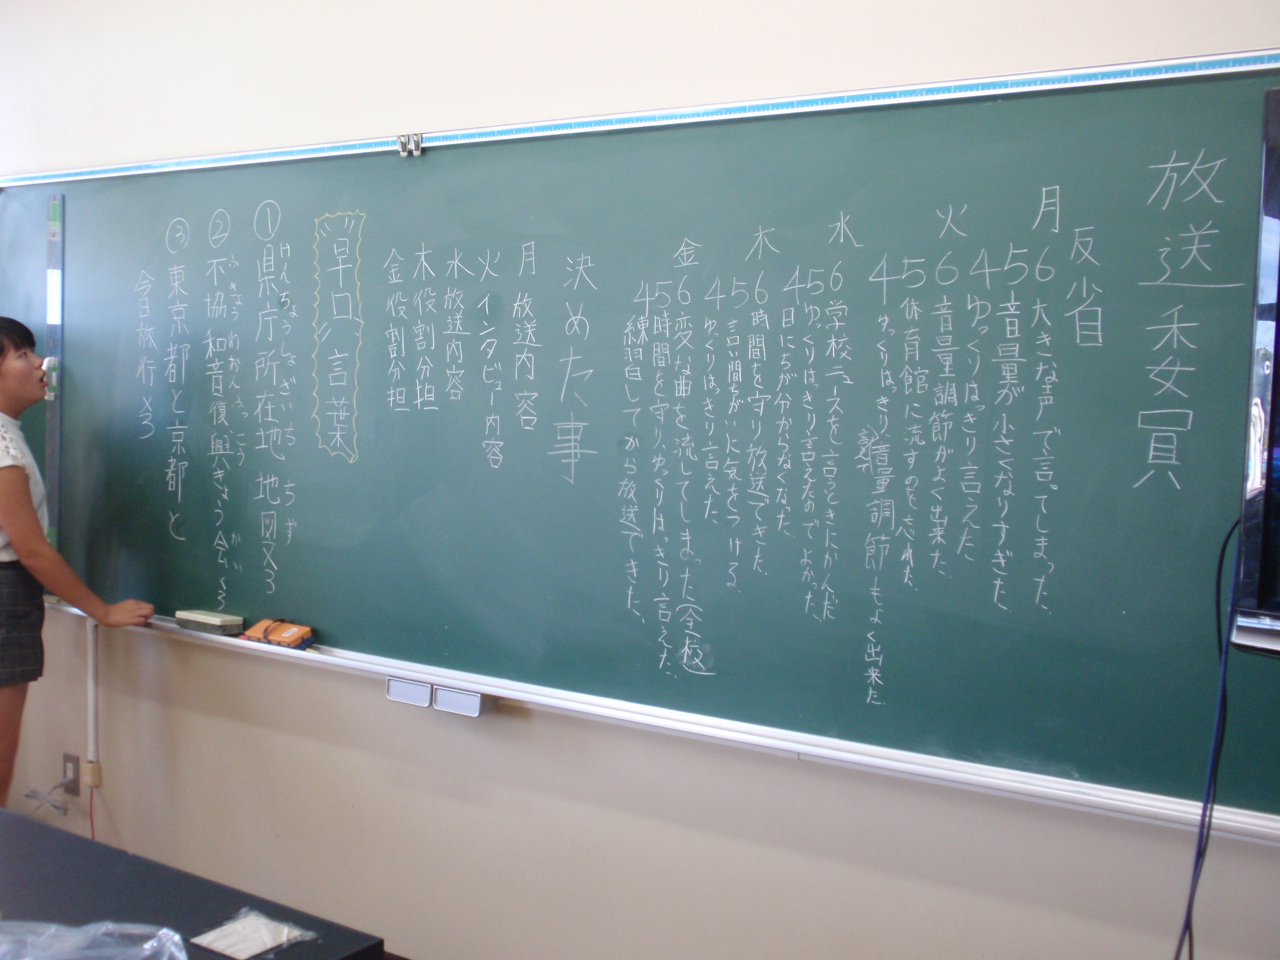 放送委員
反省
月 6 大きな声で言ってしまった。
5 音量が小さくなりすぎた
4 ゆっくりはっきり言えた
火 6 音量調節がよく出来た。
5 体育館に流すのを忘れた
4 ゆっくりはっきり 音量調節もよく出来た
水 6 学校ニュースを言うときにかんだ
5 ゆっくりはっきり言えたのでよかった。
4 日にちが分からなくなった
木 6 時間を守り放送できた。
5 言い間ちがいに気をつける。
4 ゆっくりはっきり言えた。
金 6 変な曲を流してしまった(全校)
5 時間を守りゆっくりはっきり言えた。
4 練習してから放送できた。
決めた事
月 放送内容
火 インタビュー内容
水 放送内容
木 役割分担
金 役割分担
早口言葉
① 県庁所在地 地図×3
けんちょうしょざいち ちず
② 不協和音復興きょう会×3
ふきょうわおんふっこう かい
③ 東京都と京都と
今日旅行×3